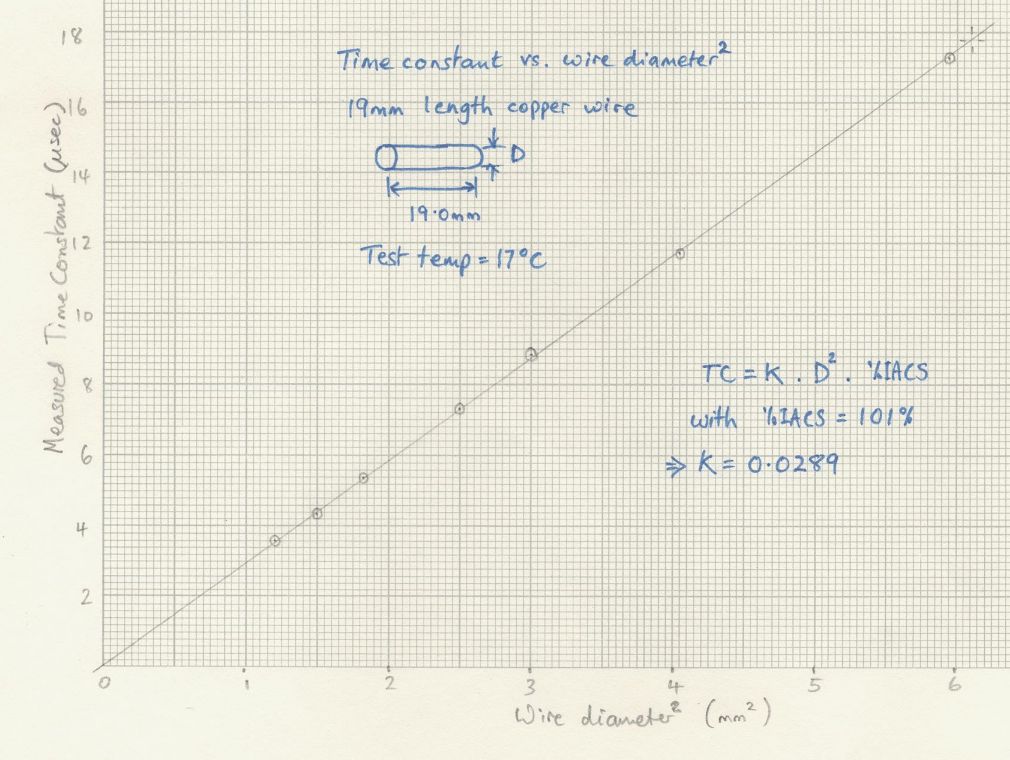 Time constant vs. wire diameter²
19mm length copper wire
D
19.0mm
Test temp = 17°C
TC = K . D² . %IACS
with %IACS = 101%
⇒ K = 0.0289
Measured Time Constant (µsec)
18
16
14
12
10
8
6
4
2
0 1 2 3 4 5 6
Wire diameter² (mm²)